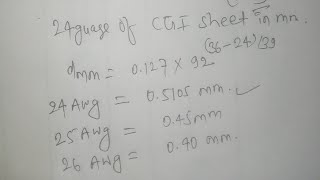 24guase of CGI sheet in mm.
dmm = 0.127 × 92 (36-24)/39
24 AWG = 0.5105 mm. ✓
25 AWG = 0.45mm
26 AWG = 0.40 mm.